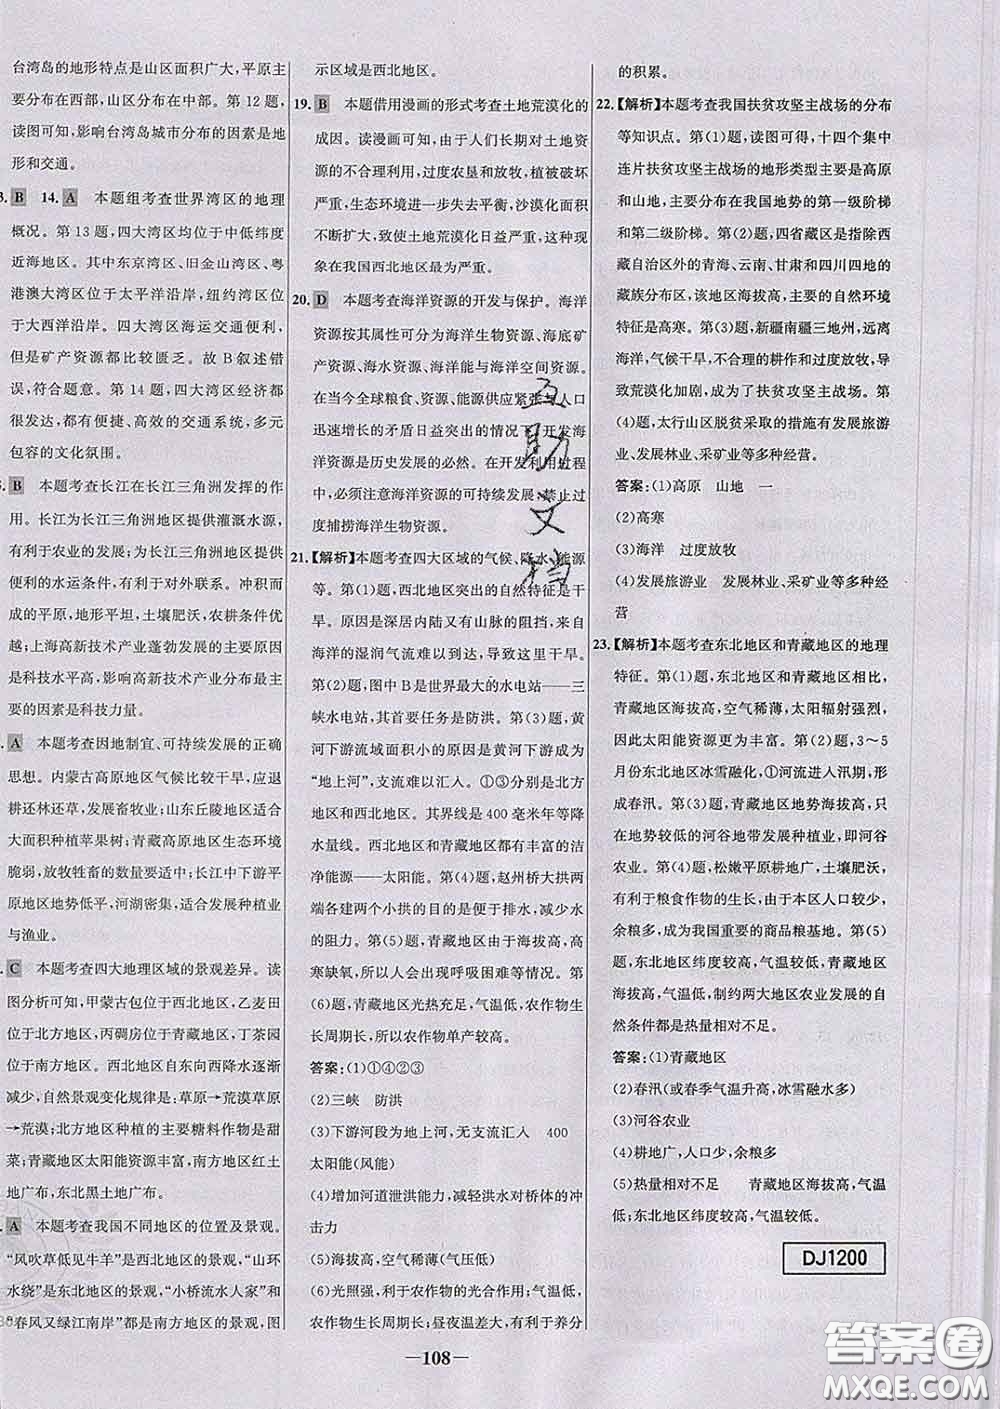 台湾岛的地形特点是山区面积广大，平原主
要分布在西部，山区分布在中部。第12题，
读图可知，影响台湾岛城市分布的因素是地
形和交通。
3. B 14. A 本题组考查世界湾区的地理
概况。第13题，四大湾区均位于中低纬度
近海地区。其中东京湾区、旧金山湾区、粤
港澳大湾区位于太平洋沿岸，纽约湾区位
于大西洋沿岸。四大湾区海运交通便利，
但是矿产资源都比较匮乏。故B叙述错
误，符合题意。第14题，四大湾区经济都
很发达，都有便捷、高效的交通系统，多元
包容的文化氛围。
5. B 本题考查长江在长江三角洲发挥的作
用。长江为长江三角洲地区提供灌溉水源，
有利于农业的发展；为长江三角洲地区提供
便利的水运条件，有利于对外联系。冲积而
成的平原，地形平坦，土壤肥沃，农耕条件优
越；上海高新技术产业蓬勃发展的主要原因
是科技水平高，影响高新技术产业分布最主
要的因素是科技力量。
. A 本题考查因地制宜、可持续发展的正确
思想。内蒙古高原地区气候比较干旱，应退
耕还林还草，发展畜牧业；山东丘陵地区适合
大面积种植苹果树；青藏高原地区生态环境
脆弱，放牧牲畜的数量要适中；长江中下游平
原地区地势低平，河湖密集，适合发展种植业
与渔业。
. C 本题考查四大地理区域的景观差异。读
图分析可知，甲蒙古包位于西北地区，乙麦田
位于北方地区，丙碉房位于青藏地区，丁茶园
位于南方地区。西北地区自东向西降水逐渐
减少，自然景观变化规律是：草原→荒漠草原
→荒漠；北方地区种植的主要糖料作物是甜
菜；青藏地区太阳能资源丰富，南方地区红土
地广布，东北黑土地广布。
. A 本题考查我国不同地区的位置及景观。
“风吹草低见牛羊”是西北地区的景观，“山环
水绕”是东北地区的景观，“小桥流水人家”和
“春风又绿江南岸”都是南方地区的景观，图
示区域是西北地区。
19. B 本题借用漫画的形式考查土地荒漠化的
成因。读漫画可知，由于人们长期对土地资
源的不合理利用，过度农垦，植被破坏严
重，生态环境进一步失去平衡，沙漠化面积
不断扩大，致使土地荒漠化日益严重，这种
现象在我国西北地区最为严重。
20. D 本题考查海洋资源的开发与保护。海洋
资源按其属性可分为海洋生物资源、海底矿
产资源、海水资源、海洋能与海洋空间资源。
在当今全球粮食、资源、能源供应紧张与人口
迅速增长的矛盾日益突出的情况下，开发海
洋资源是历史发展的必然。在开发利用过程
中，必须注意海洋资源的可持续发展，禁止过
度捕捞海洋生物资源。
21.【解析】本题考查四大区域的气候、降水、能源
等。第(1)题，西北地区突出的自然特征是干
旱。原因是深居内陆又有山脉的阻挡，来自
海洋的湿润气流难以到达，导致这里干旱。
第(2)题，图中B是世界最大的水电站——三
峡水电站，其首要任务是防洪。第(3)题，黄
河下游流域面积小的原因是黄河下游成为
“地上河”，支流难以汇入。①③分别是北方
地区和西北地区。其界线是400毫米年等降
水量线。西北地区和青藏地区都有丰富的洁
净能源——太阳能。第(4)题，赵州桥大拱两
端各建两个小拱的目的是便于排水，减少水
的阻力。第(5)题，青藏地区由于海拔高，高
寒缺氧，所以人会出现呼吸困难等情况。第
(6)题，青藏地区光热充足，气温低，农作物生
长周期长，所以农作物单产较高。
答案：(1)①④②③
(2)三峡 防洪
(3)下游河段为地上河，无支流汇入 400
太阳能(风能)
(4)增加河道泄洪能力，减轻洪水对桥体的冲
击力
(5)海拔高，空气稀薄(气压低)
(6)光照强，利于农作物的光合作用；气温低，
农作物生长周期长；昼夜温差大，有利于养分
的积累。
22.【解析】本题考查我国扶贫攻坚主战场的分布
等知识点。第(1)题，读图可得，十四个集中
连片扶贫攻坚主战场的地形类型主要是高原
和山地，主要分布在我国地势的第一级阶梯
和第二级阶梯。第(2)题，四省藏区是指除西
藏自治区外的青海、云南、甘肃和四川四省的
藏族分布区，该地区海拔高，主要的自然环境
特征是高寒。第(3)题，新疆南疆三地州，远离
海洋，气候干旱，不合理的耕作和过度放牧，导
致荒漠化加剧，成为了扶贫攻坚主战场。第
(4)题，太行山区脱贫采取的措施有发展旅游
业、发展林业、采矿业等多种经营。
答案：(1)高原 山地 一
(2)高寒
(3)海洋 过度放牧
(4)发展旅游业 发展林业、采矿业等多种经
营
23.【解析】本题考查东北地区和青藏地区的地理
特征。第(1)题，东北地区和青藏地区相比，
青藏地区海拔高，空气稀薄，太阳辐射强烈，
因此太阳能资源更为丰富。第(2)题，3～5
月份东北地区冰雪融化，①河流进入汛期，形
成春汛。第(3)题，青藏地区海拔高，农民会
在地势较低的河谷地带发展种植业，即河谷
农业。第(4)题，松嫩平原耕地广，土壤肥沃，
有利于粮食作物的生长，由于本区人口较少，
因此成为我国重要的商品粮基地。第(5)
题，东北地区纬度较高，气温低，青藏地区海
拔高，气温低，制约两大地区农业发展的自
然条件都是热量相对不足。
答案：(1)青藏地区
(2)春汛(或春季气温升高，冰雪融水多)
(3)河谷农业
(4)耕地广，人口少，余粮多
(5)热量相对不足 青藏地区海拔高，气温
低；东北地区纬度高，气温低
DJ1200
—108—
互助文档
答案圈
MXQE.COM